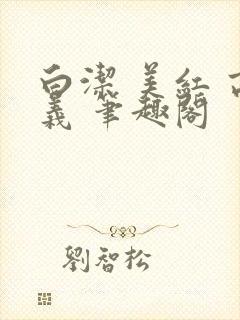 白潔 美紅 高
義 筆趣閣
劉智松